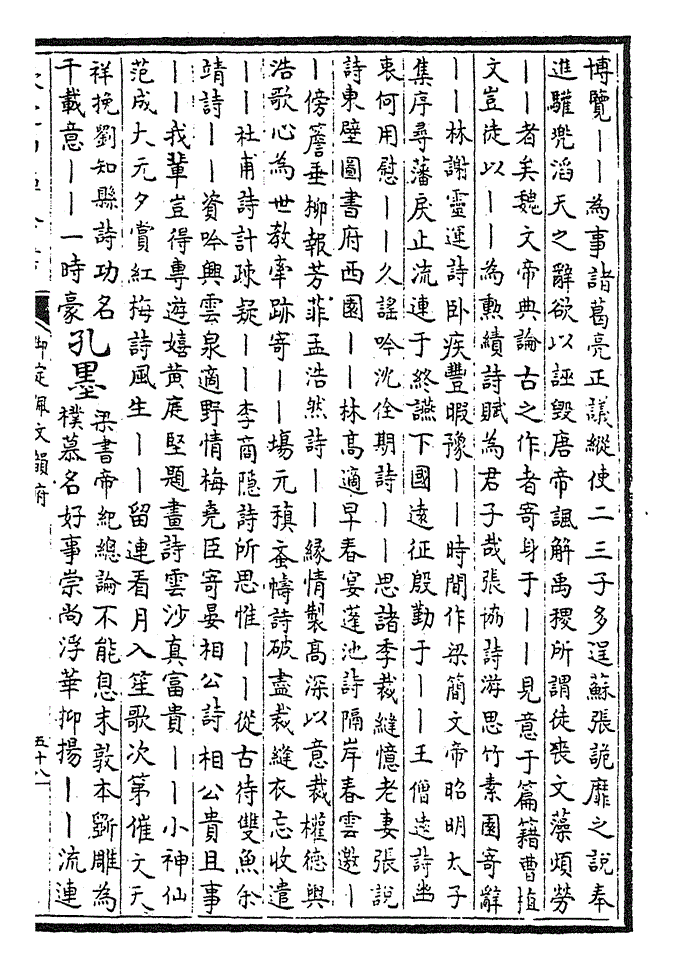 博覽丨丨為事諸葛亮正議縱使二三子多逞蘇張詭靡之說奉
進驩兜滔天之辭欲以誣毀唐帝諷解禹稷所謂徒喪文藻煩勞
丨丨者矣魏文帝典論古之作者寄身于丨丨見意于篇籍曹植
文豈徒以丨丨為勲績詩賦為君子哉張協詩游思竹素園寄辭
丨丨林謝靈運詩卧疾豐暇豫丨丨時間作梁簡文帝昭明太子
集序尋藩戾止流連于終讌下國遠征殷勤于丨丨王僧逺詩幽
衷何用慰丨丨久謡吟沈佺期詩丨丨思諸季裁縫憶老妻張說
詩東壁圖書府西園丨丨林高適早春宴蓬池詩隔岸春雲邀丨
丨傍簷垂柳報芳菲孟浩然詩丨丨縁情製高深以意裁權德輿
浩歌心為世教牽跡寄丨丨場元稹蚉幬詩破盡裁縫衣忘收遣
丨丨杜甫詩計疎疑丨丨李商隱詩所思惟丨丨從古待雙魚尒
靖詩丨丨資吟興雲泉適野情梅堯臣寄晏相公詩相公貴且事
丨丨我輩豈得專遊嬉黄庭堅題畫詩雲沙真富貴丨丨小神仙
范成大元夕賞紅梅詩風生丨丨留連看月入笙歌次第催文天
祥挽劉知縣詩功名千載意丨丨一時豪
孔墨
梁書帝紀總論不能息末敦本斵雕為樸慕名好事崇尚浮華抑揚丨丨流連
御定佩文韻府
五十八